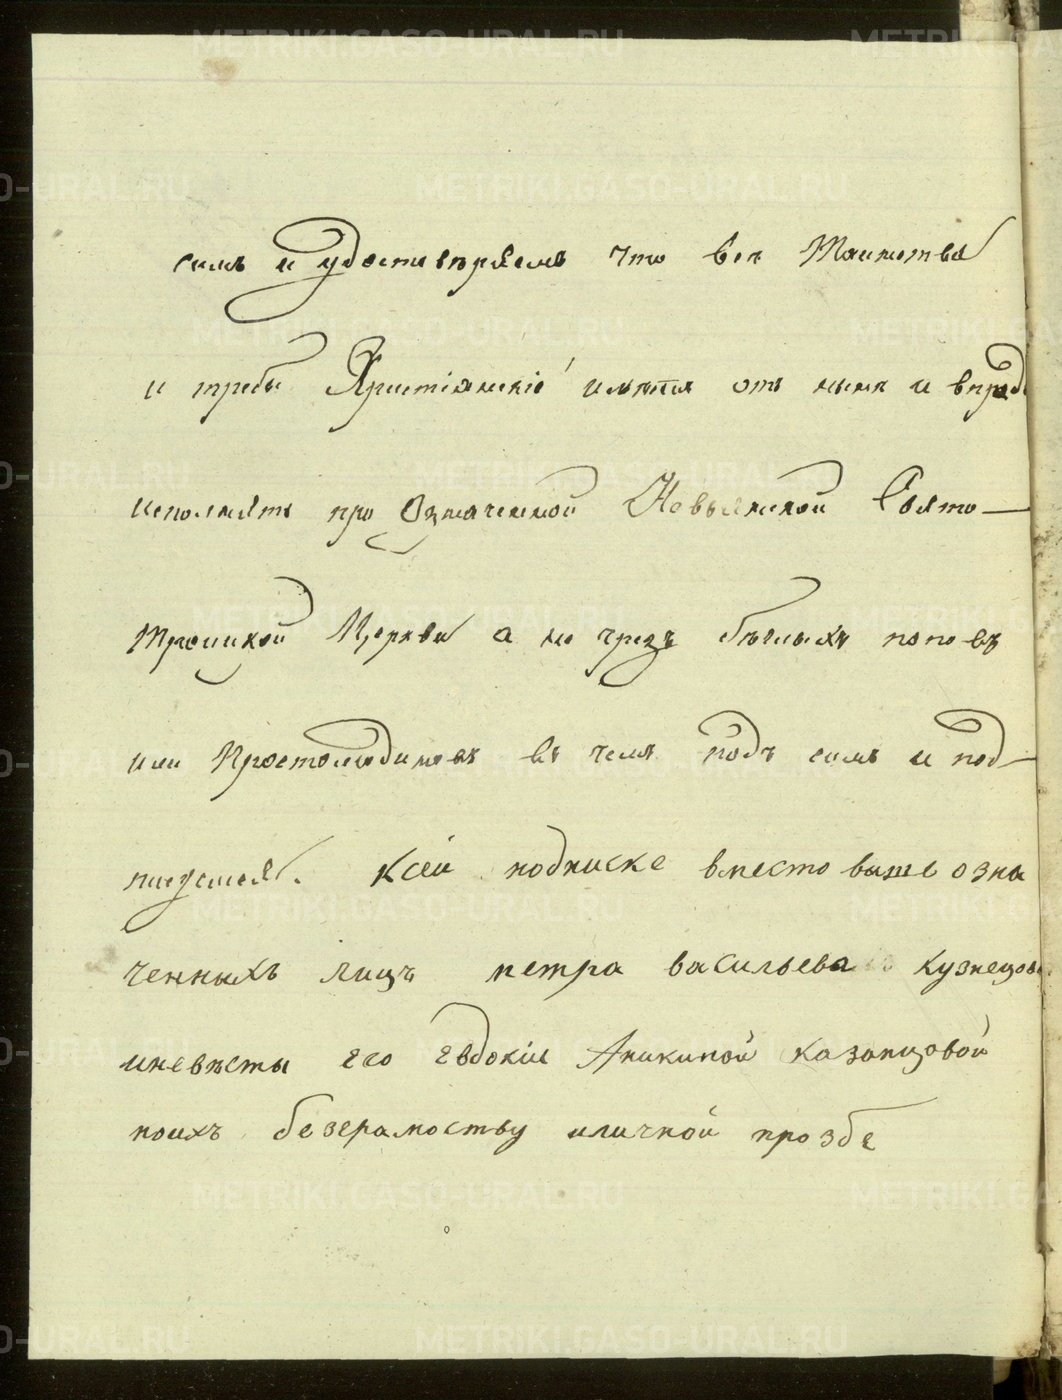 симъ и удостовѣряемъ что всѣ Таинства
и требы Християнскіе имѣетъ отъ нынѣ и впредь
исполнять при означенной Невьянской Свято-
троицкой Церкви а не чрезъ бѣглыхъ поповъ
или Простолюдиновъ въ чемъ подъ симъ и под-
писуемся. Ксей подписке вместо выше озна
ченныхъ лицъ петра васильева кузнецова
иневѣсты его евдокіи Аникиной казанцовой
поихъ безграмоству иличной прозбе
METRIKI.GASO-URAL.RU